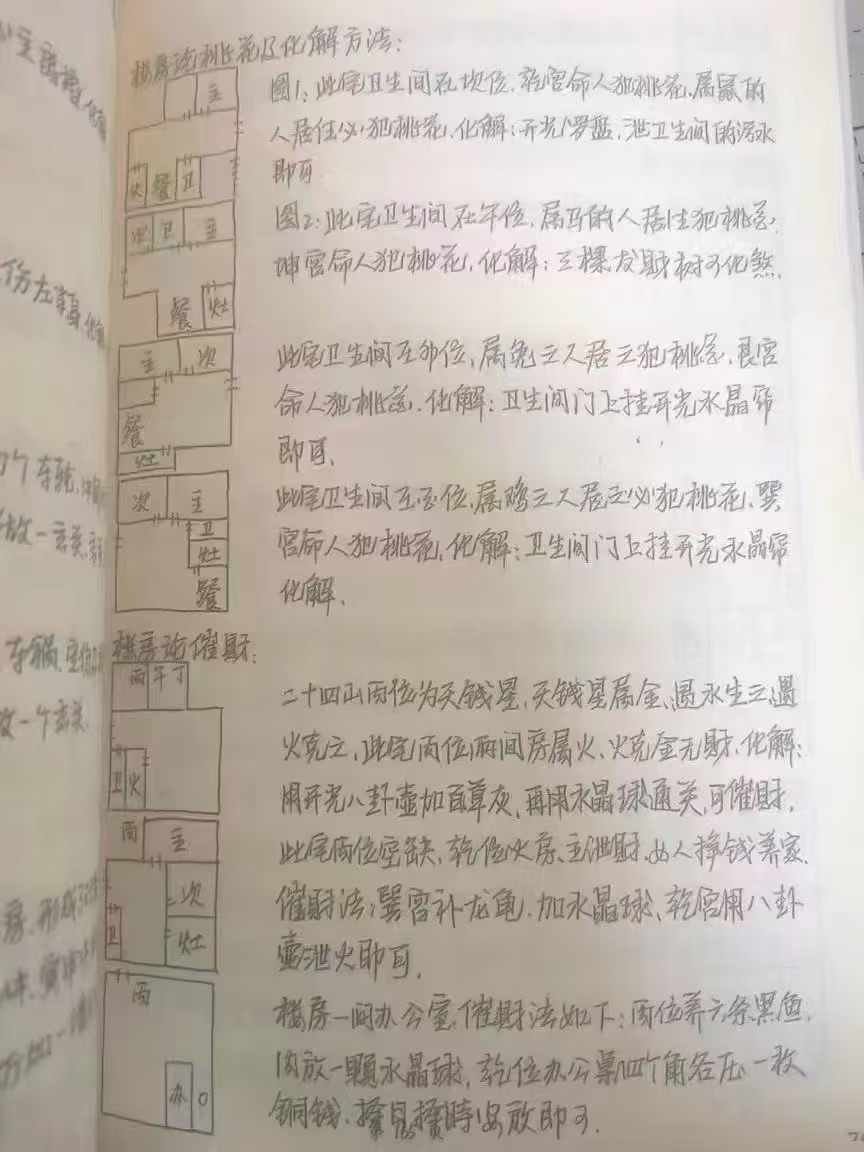 楼房论桃花及化解方法：
主
图1：此宅卫生间在坎位，乾宫命人犯桃花，属鼠的
人居住必犯桃花，化解：开光罗盘，泄卫生间的污水
即可
餐 卫
次 卫 主
餐 灶
图2：此宅卫生间在午位，属马的人居住犯桃花，
坤宫命人犯桃花，化解：三棵发财树可化煞
主 次
餐
灶
此宅卫生间在卯位，属兔之人居之犯桃花，艮宫
命人犯桃花，化解：卫生间门上挂开光水晶帘
即可，
次 主
卫
灶
餐
此宅卫生间在酉位，属鸡之人居之必犯桃花，巽
宫命人犯桃花，化解：卫生间门上挂开光水晶帘
化解，
楼房论催财：
丙 午 丁
卫 火
二十四山丙位为天钱星，天钱星属金，遇水生之，遇
火克之，此宅丙位两间房属火、火克金无财，化解：
用开光八卦壶加百草灰，再用水晶球通关，可催财，
丙 主
次
卫 灶
此宅丙位空缺，乾位火房，主泄财，女人挣钱养家，
催财法：巽宫补龙龟，加水晶球、乾宫用八卦
壶泄火即可，
丙
办
楼房一间办公室，催财法如下：丙位养六条黑鱼，
内放一颗水晶球，乾位办公桌四个角各压一枚
铜钱，择时安放即可．
伤左
个车
放一玄关
车祸
放一个玄关
房